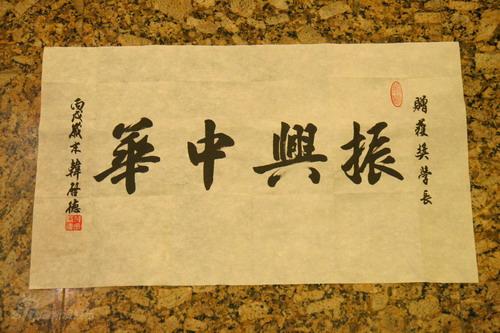 贈獲奬學長
振興中華
丙戌歲末韓啓德